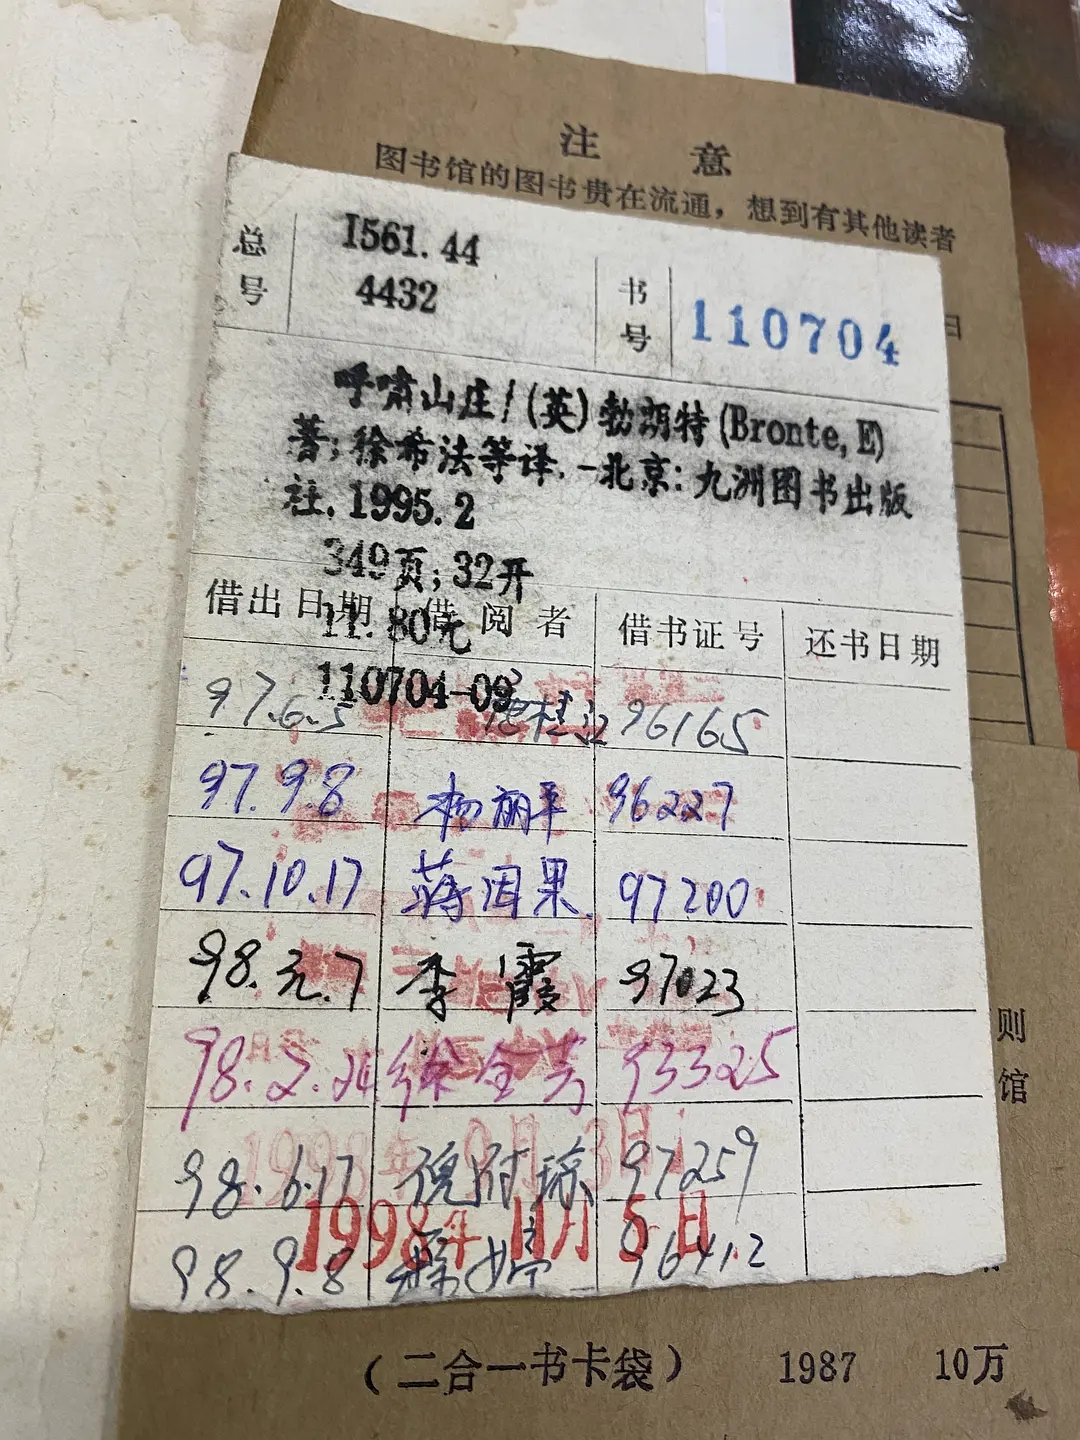 注 意
图书馆的图书贵在流通，想到有其他读者
总号 I561.44 4432 书号 110704
日
呼啸山庄/(英)勃朗特(Bronte,E)
著;徐希法等译.-北京:九洲图书出版
社,1995.2
349页;32开
11.80元
借出日期 借阅者 借书证号 还书日期
110704-09
97.6.5 桂 96165
97.9.8 杨丽平 96227
97.10.17 蒋国果 97200
98.元.7 李霞 97023
98.2.24 徐全芳 93325
98.6.17 97259
98.9.8 婷 96412
1998年11月5日
则
馆
(二合一书卡袋) 1987 10万